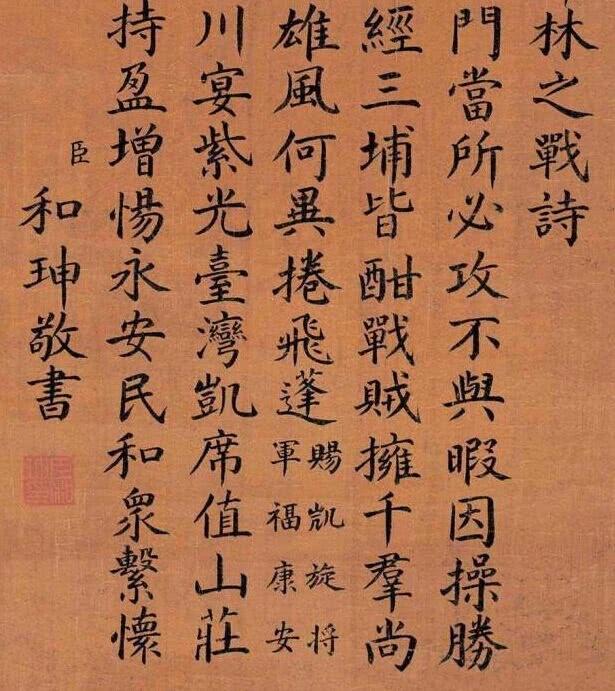 林之戰詩
門當所必攻不與暇因操勝
經三埔皆酣戰賊擁千羣尚
雄風何異捲飛蓬
賜凱旋将
軍福康安
川宴紫光臺灣凱席值山莊
持盈增惕永安民和衆繫懷
臣和珅敬書